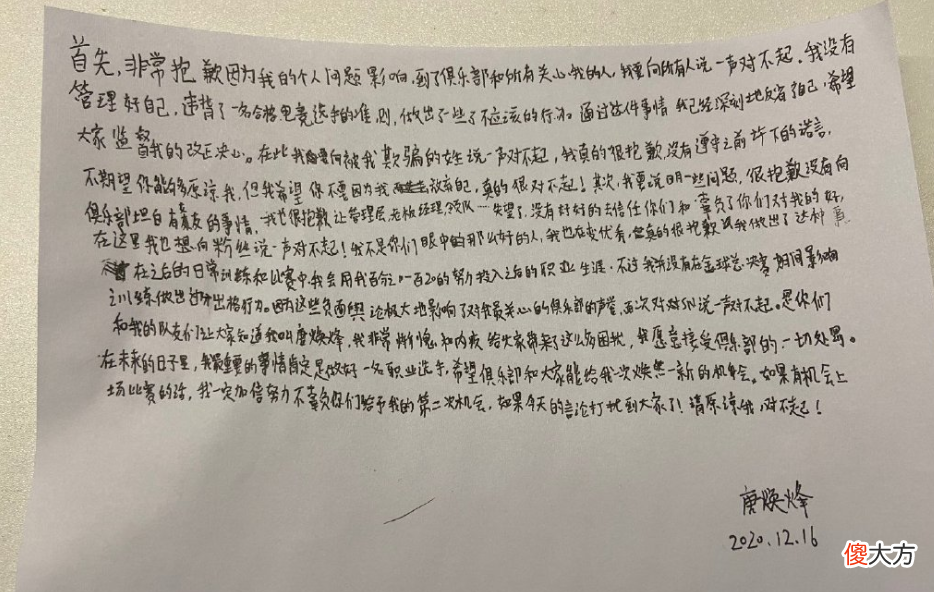 首先,非常抱歉因为我的个人问题影响到了俱乐部和所有关心我的人,我要向所有人说一声对不起。我没有
管理好自己,违背了一名合格电竞选手的准则,做出了一些了不应该的行为 通过这件事情 我已经深刻地反省了自己,希望
大家监督我的改正决心。在此我要向被我欺骗的女生说一声对不起,我真的很抱歉没有遵守之前许下的诺言,
不期望你能够原谅我,但我希望你不要因为我放弃自己,真的很对不起!其次,我要说明一些问题,很抱歉没有向
俱乐部坦白有女友的事情,我也很抱歉让管理层,老板经理,领队……失望了,没有好好的去信任你们和辜负了你们对我的好,
在这里我也想向粉丝说一声对不起!我不是你们眼中的那么好的人,我也在变优秀,但真的很抱歉 我做出了这种事
在之后的日常训练和比赛中,我会用我百分之一百20的努力投入之后的职业生涯.不过我并没有在全球总决赛期间影响
训练做出过分出格行为。因为这些负面舆论极大地影响了对我最关心的俱乐部的声誉,再次对对SN说一声对不起。是你们
和我的队友们让大家知道我叫唐焕烽,我非常惭愧和内疚给大家带来了这么多困扰,我愿意接受俱乐部的一切处罚。
在未来的日子里,我最重要的事情肯定是做好一名职业选手,希望俱乐部和大家能给我一次焕然一新的机会。如果有机会上
场比赛的话,我一定加倍努力不辜负你们给予我的第二次机会.如果今天的言论打扰到大家了!请原谅我,对不起!
唐焕烽
2020.12.16
傻大方